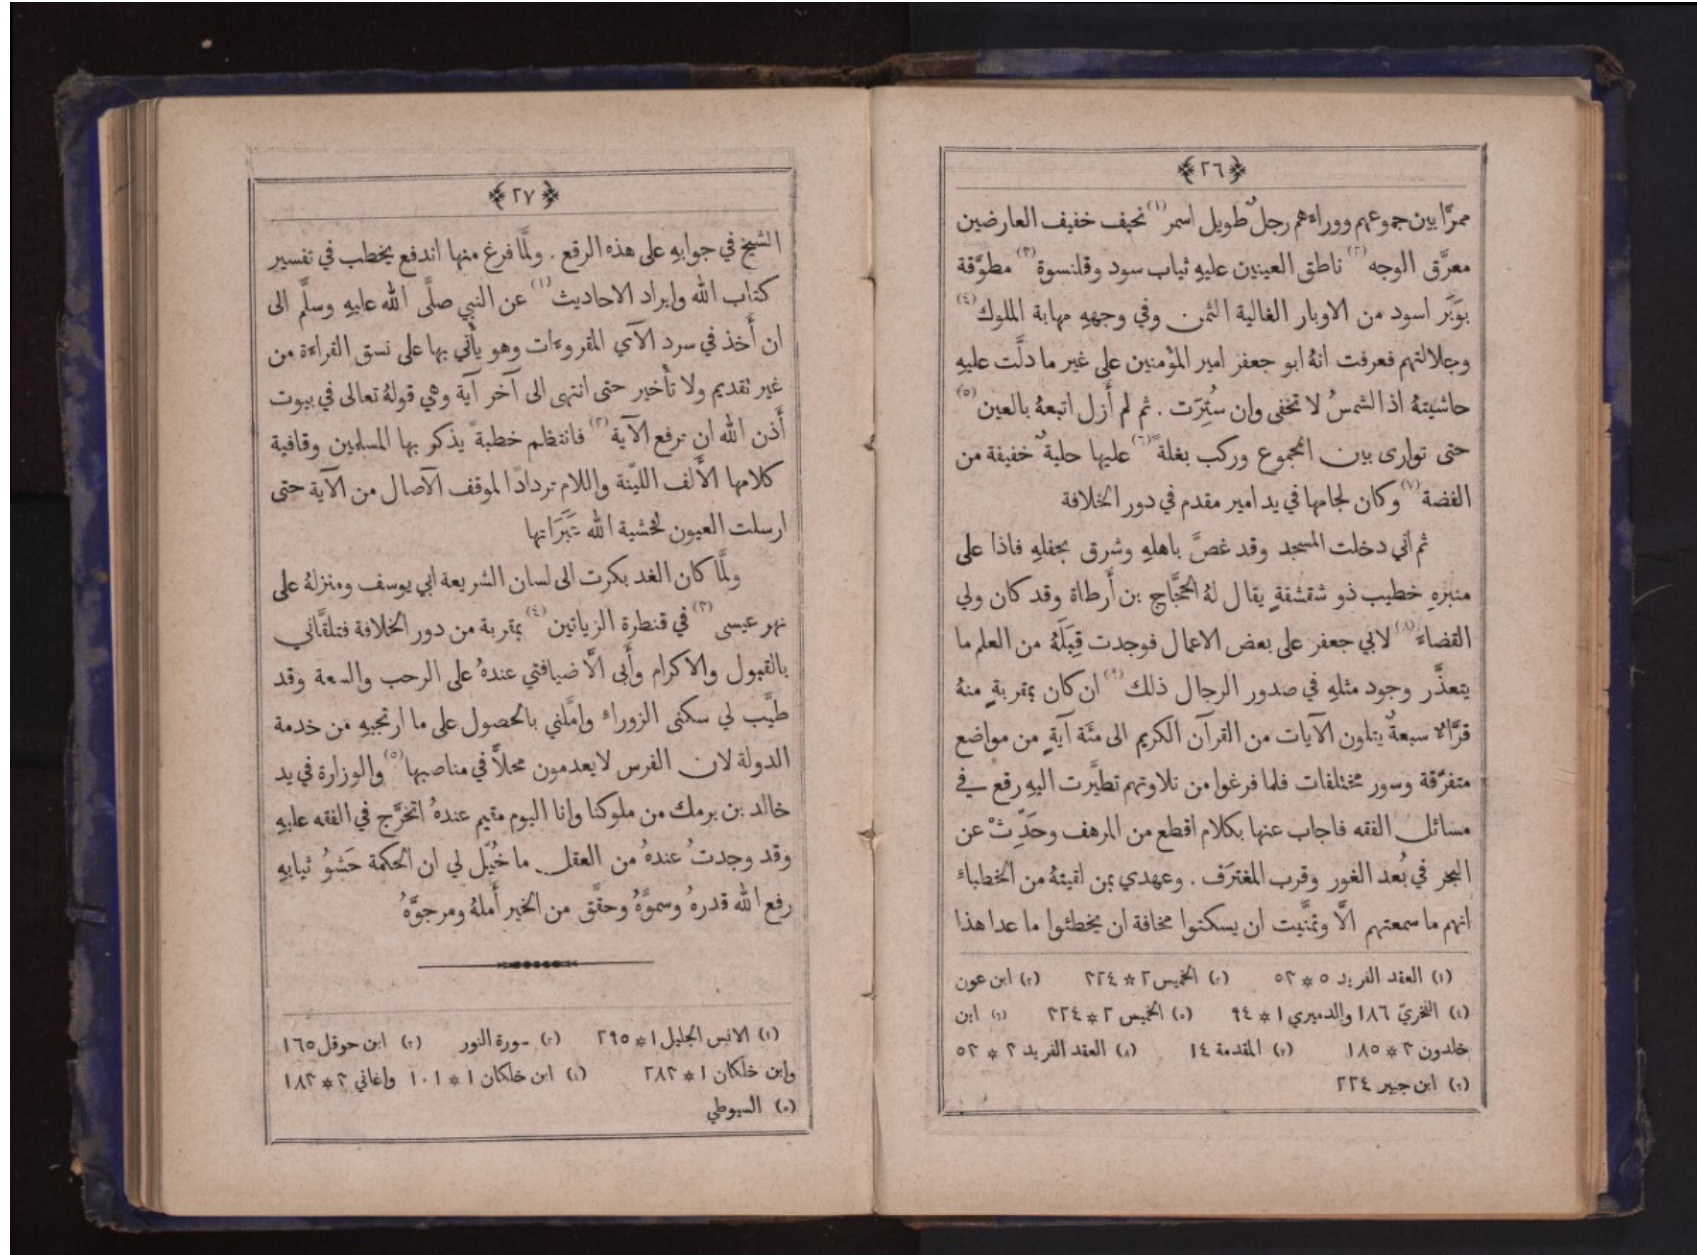 ﴿٢٦﴾
ممرًّا بين جموعهم ووراءهم رجلٌ طويل اسمر (١) نحيف خفيف العارضين
معرَّق الوجه (٢) ناطق العينين عليهِ ثياب سود وقلنسوة (٣) مطوَّقة
بوَبَر اسود من الاوبار الغالية الثمن وفي وجههِ مهابة الملوك (٤)
وجلالتهم فعرفت انهُ ابو جعفر امير المؤمنين على غير ما دلَّت عليهِ
حاشيتهُ اذ الشمسُ لا تخفى وان سُتِرَت . ثم لم أَزل اتبعهُ بالعين (٥)
حتى توارى بين الجموع وركب بغلةً (٦) عليها حليةٌ خفيفة من
الفضة (٧) وكان لجامها في يد امير مقدم في دور الخلافة
ثم اني دخلت المسجد وقد غصَّ باهلهِ وشرق بحفلهِ فاذا على
منبرهِ خطيب ذو شقشقةٍ يقال لهُ الحجَّاج بن أَرطاة وقد كان ولي
القضاءَ (٨) لابي جعفر على بعض الاعمال فوجدت قِبَلَهُ من العلم ما
يتعذَّر وجود مثلهِ في صدور الرجال ذلك (٩) ان كان بمقربةٍ منهُ
قرَّاءٌ سبعةٌ يتلون الآيات من القرآن الكريم الى مئَة آيةٍ من مواضع
متفرّقة وسور مختلفات فلما فرغوا من تلاوتهم تطيَّرت اليهِ رقع في
مسائل الفقه فاجاب عنها بكلام اقطع من المرهف وحَدِّثْ عن
البحر في بُعد الغور وقرب المغترَف . وعهدي بمن لقيتهُ من الخطباء
انهم ما سمعتهم الَّا وتمنَّيت ان يسكتوا مخافة ان يخطئوا ما عدا هذا
(١) العقد الفريد ٥ * ٥٢ (٢) الخميس ٢ * ٢٢٤ (٣) ابن عون
(٤) الفخريّ ١٨٦ والدميري ١ * ٩٤ (٥) الخميس ٢ * ٢٢٤ (٦) ابن
خلدون ٣ * ١٨٥ (٧) المقدمة ١٤ (٨) العقد الفريد ٢ * ٥٢
(٩) ابن جبير ٢٢٤
﴿٢٧﴾
الشيخ في جوابهِ على هذه الرقع . ولمَّا فرغ منها اندفع يخطب في تفسير
كتاب الله وايراد الاحاديث (١) عن النبي صلَّى الله عليهِ وسلَّم الى
ان أَخذ في سرد الآي المقروءات وهو يأْتي بها على نسق القراءة من
غير تقديم ولا تأْخير حتى انتهى الى آخر آية وهي قولهُ تعالى في بيوت
أَذن الله ان ترفع الآية (٢) فانتظم خطبةً يذكر بها المسلمين وقافية
كلامها الأَلف الليّنة واللام تردادًا لموقف الآصال من الآية حتى
ارسلت العيون لخشية الله عَبَرَاتها
ولمَّا كان الغد بكرت الى لسان الشريعة ابي يوسف ومنزلهُ على
نهر عيسى (٣) في قنطرة الزياتين (٤) بمقربة من دور الخلافة فتلقَّاني
بالقبول والاكرام وأَبى الَّا ضيافتي عندهُ على الرحب والسعة وقد
طيَّب لي سكنى الزوراء وامَّلني بالحصول على ما ارتجيهِ من خدمة
الدولة لان الفرس لا يعدمون محلًّا في مناصبها (٥) والوزارة في يد
خالد بن برمك من ملوكنا وانا اليوم مقيم عندهُ اتخرَّج في الفقه عليهِ
وقد وجدتُ عندهُ من العقل ما خُيّل لي ان الحكمة حَشوُ ثيابهِ
رفع الله قدرهُ وسموَّهُ وحقَّق من الخير أَملهُ ومرجوَّهُ
(١) الانس الجليل ١ * ٢٩٥ (٢) سورة النور (٣) ابن حوقل ١٦٥
وابن خلّكان ١ * ٢٨٢ (٤) ابن خلكان ١ * ١٠١ واغاني ٣ * ١٨٢
(٥) السيوطي